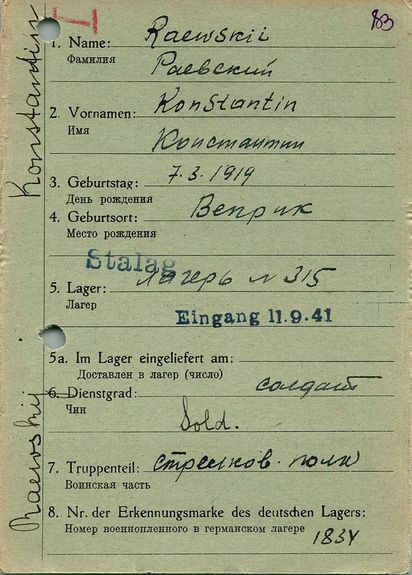 83
1. Name: Raewskii
Фамилия Раевский
2. Vornamen: Konstantin
Имя Константин
3. Geburtstag: 7.3.1919
День рождения
4. Geburtsort: Веприк
Место рождения
Stalag
5. Lager: Лагерь N 315
Лагер
Eingang 11.9.41
5a. Im Lager eingeliefert am:
Доставлен в лагер (число)
6. Dienstgrad: солдат
Чин Sold.
7. Truppenteil: стрелков. полк
Воинская часть
8. Nr. der Erkennungsmarke des deutschen Lagers:
Номер военнопленного в германском лагере
1834
Raewskij Konstantin